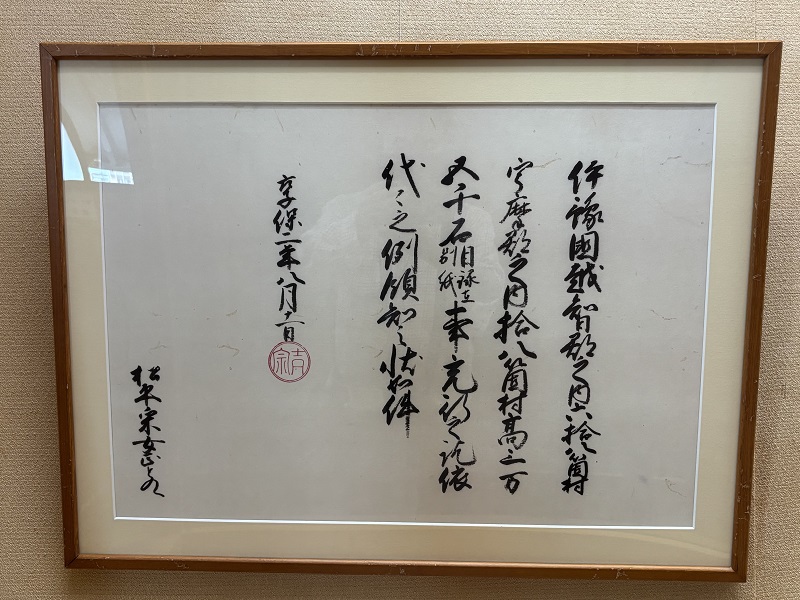 伊豫國越智郡之内六拾八箇村
宇摩郡之内拾八箇村高三万
五千石目録在別紙事充行之訖依
代々之例領知之状如件
享保二年八月十一日
吉宗
松平采女正とのへ